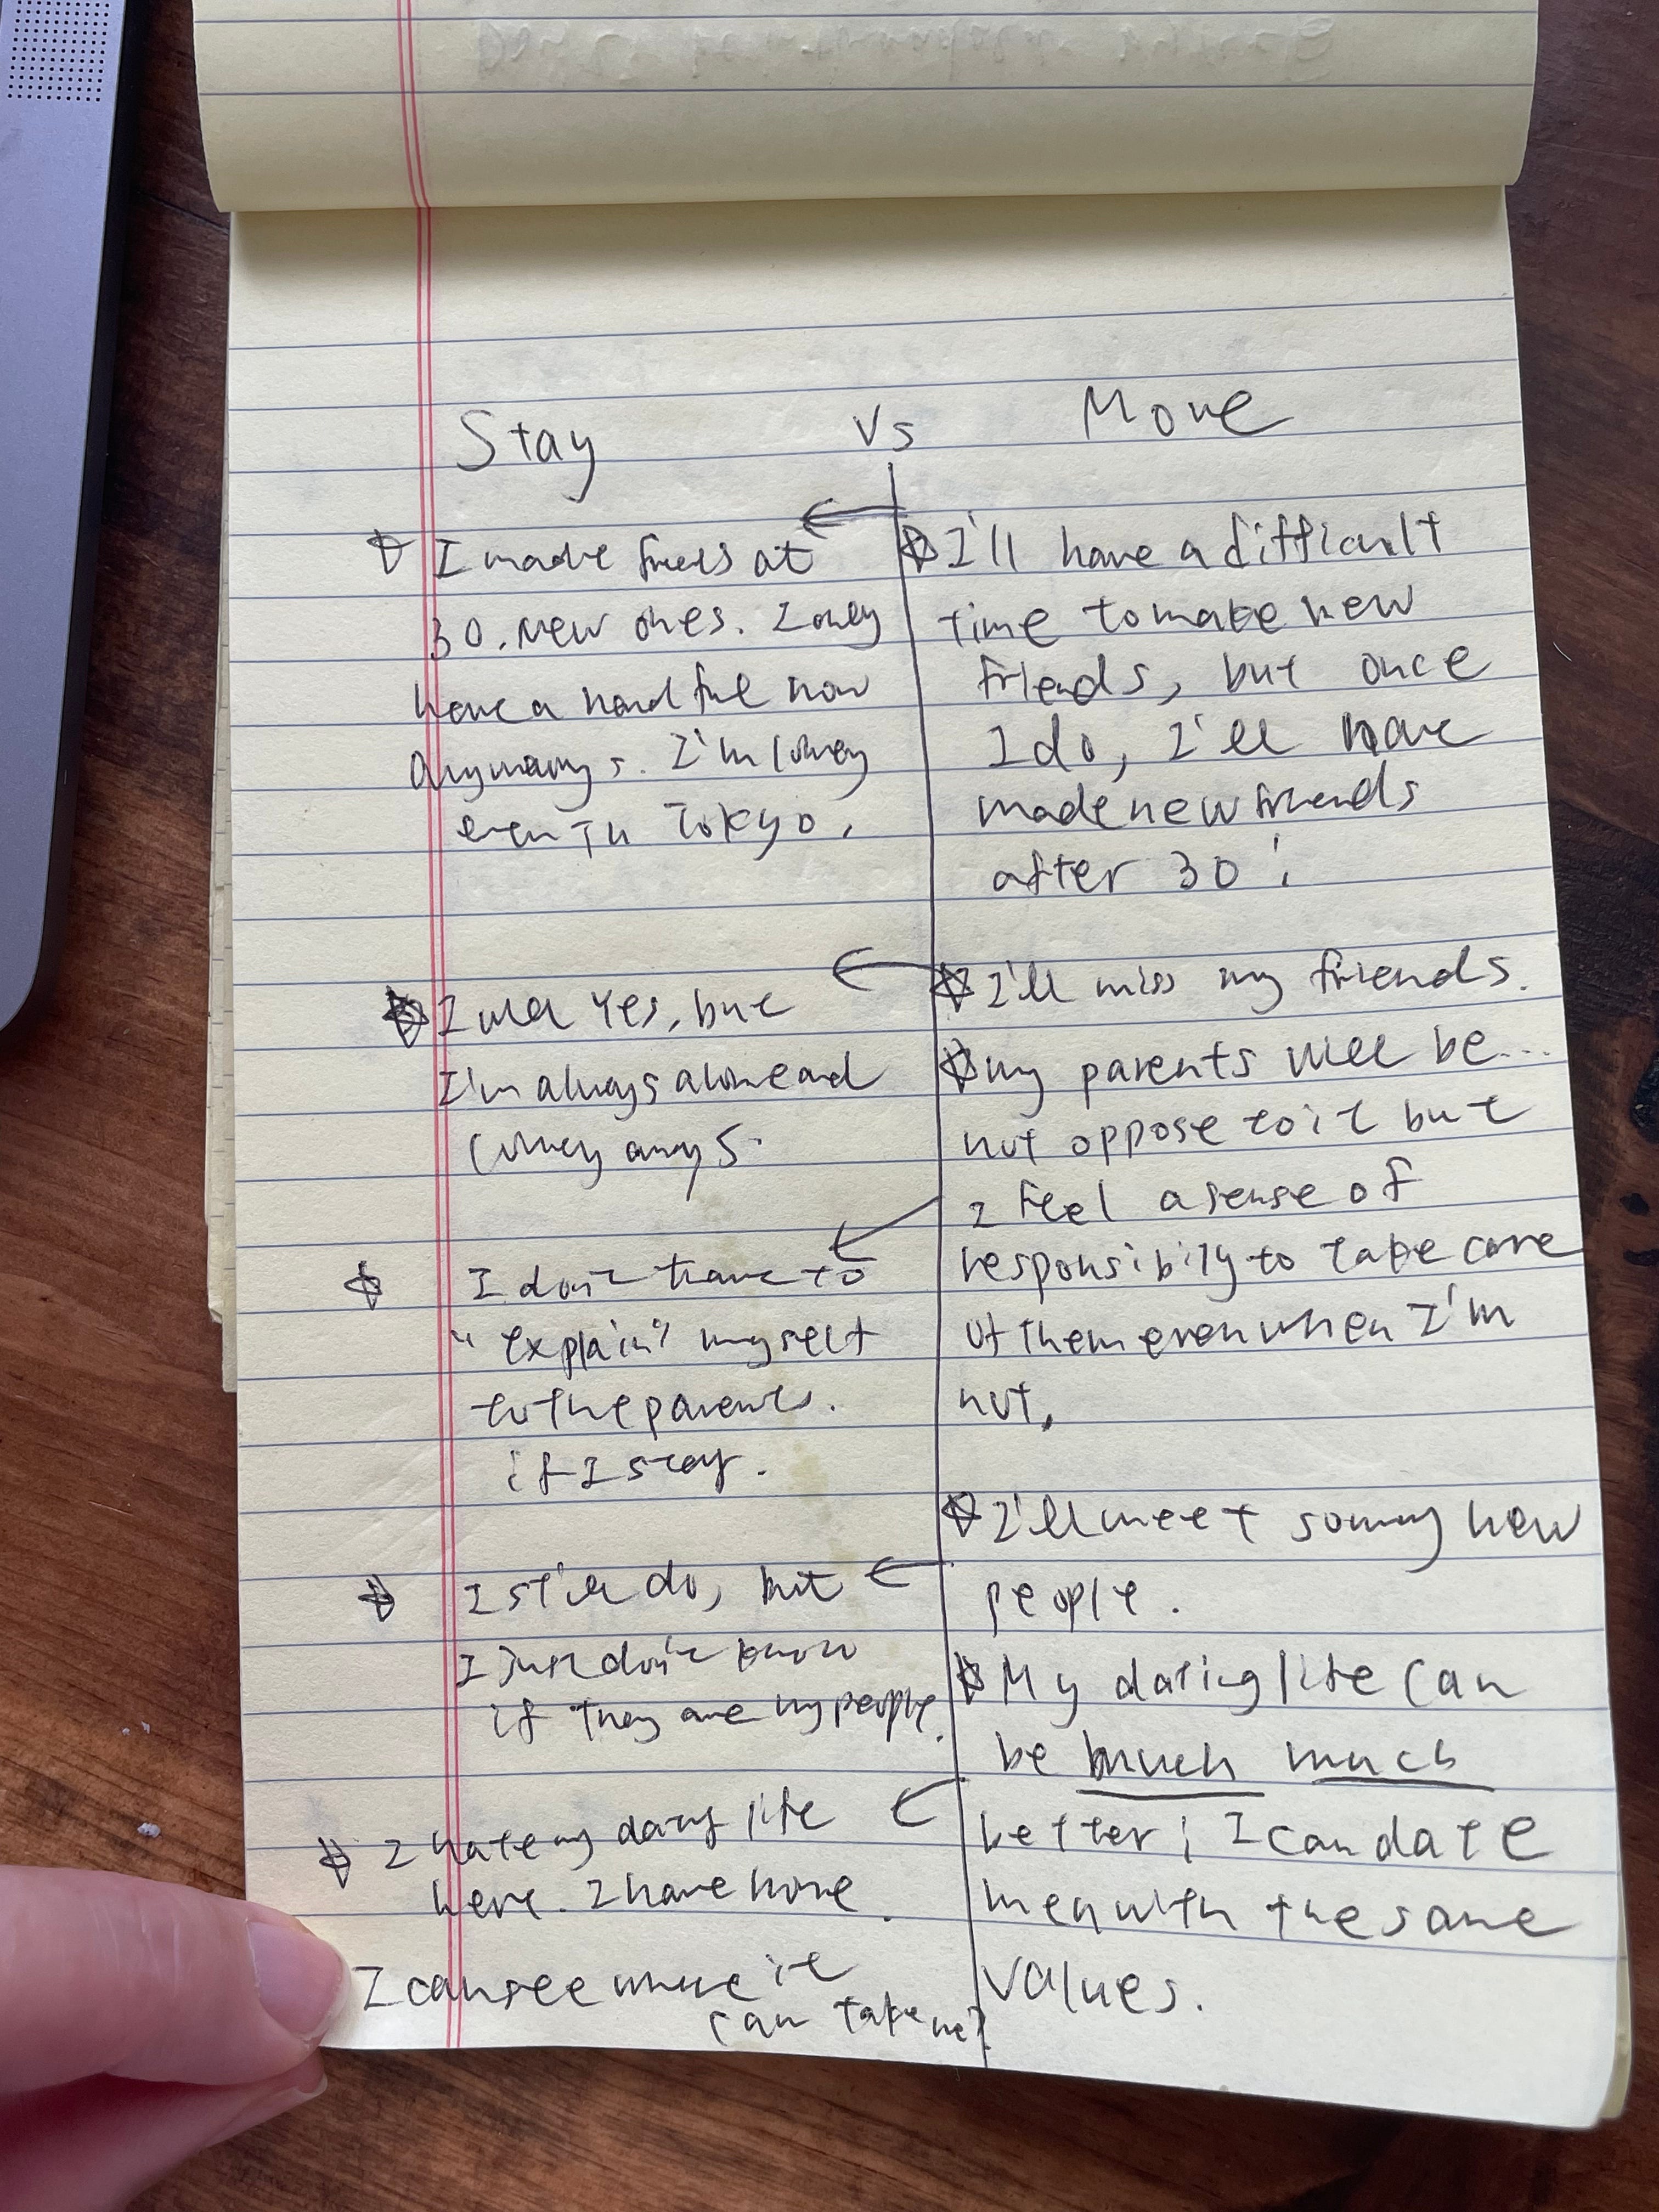 Stay vs Move
I made friends at
30. New ones. I only
have a handful now
anyways. I'm loney
even in Tokyo.
I will Yes, but
I'm always alone and
loney anyS.
I don't have to
"explain" myself
to the parents.
if I stay.
I still do, but
I just don't know
if they are my people.
I hate my dating life
here. I have none.
I can see where it
can take me?
I'll have a difficult
time to make new
friends, but once
I do, I'll have
made new friends
after 30!
I'll miss my friends.
my parents will be...
not oppose to it but
I feel a sense of
responsibily to take care
of them even when I'm
not.
I'll meet so many new
people.
My dating life can
be much much
better; I can date
men with the same
values.